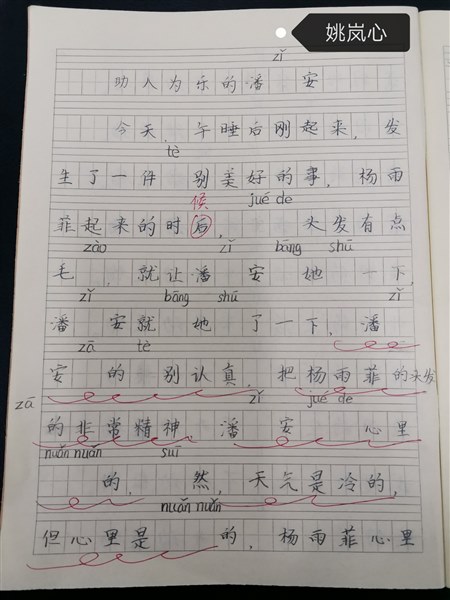 姚岚心
zǐ
助人为乐的潘 安
今天，午睡后刚起来，发
tè
生了一件 别美好的事，杨雨
候 jué de
菲起来的时后， 头发有点
zào zǐ bāng shū
毛 ，就让潘 安 她 一下，
zǐ bāng shū zǐ
潘 安就 她 了一下，潘
zā tè
安 的 别认真，把杨雨菲的头发
zā zǐ jué de
的非常精神，潘 安 心里
nuǎn nuǎn suī
的， 然，天气是冷的，
nuǎn nuǎn
但心里是 的，杨雨菲心里